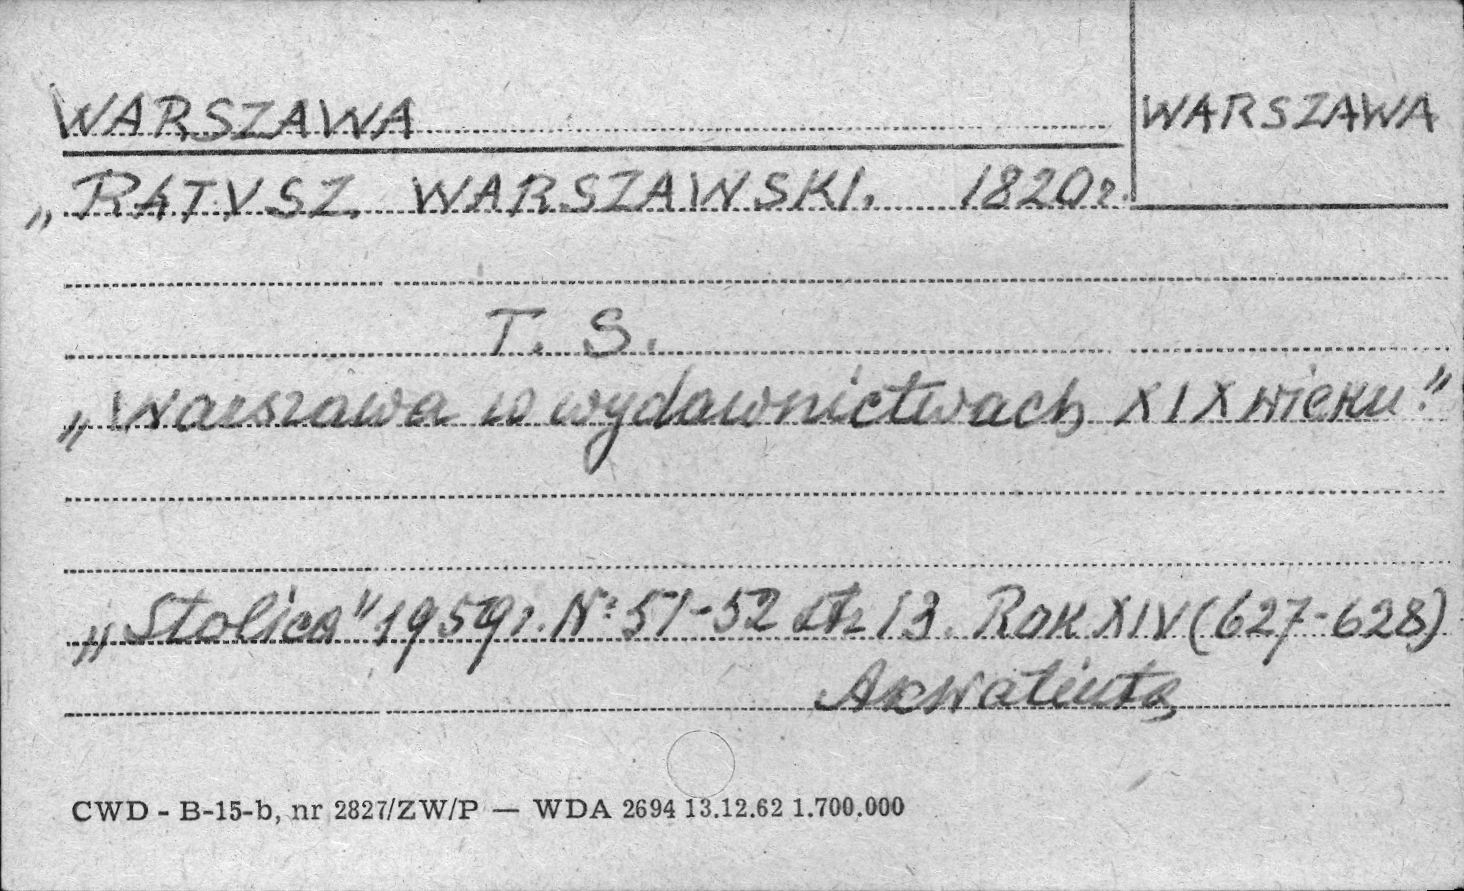 WARSZAWA
WARSZAWA
„RATUSZ WARSZAWSKI. 1820r.
T. S.
„Warszawa w wydawnictwach XIX wieku."
„Stolica" 1959r. Nr 51-52 str 13. Rok XIV (627-628)
Akwatinta
CWD - B-15-b, nr 2827/ZW/P — WDA 2694 13.12.62 1.700.000